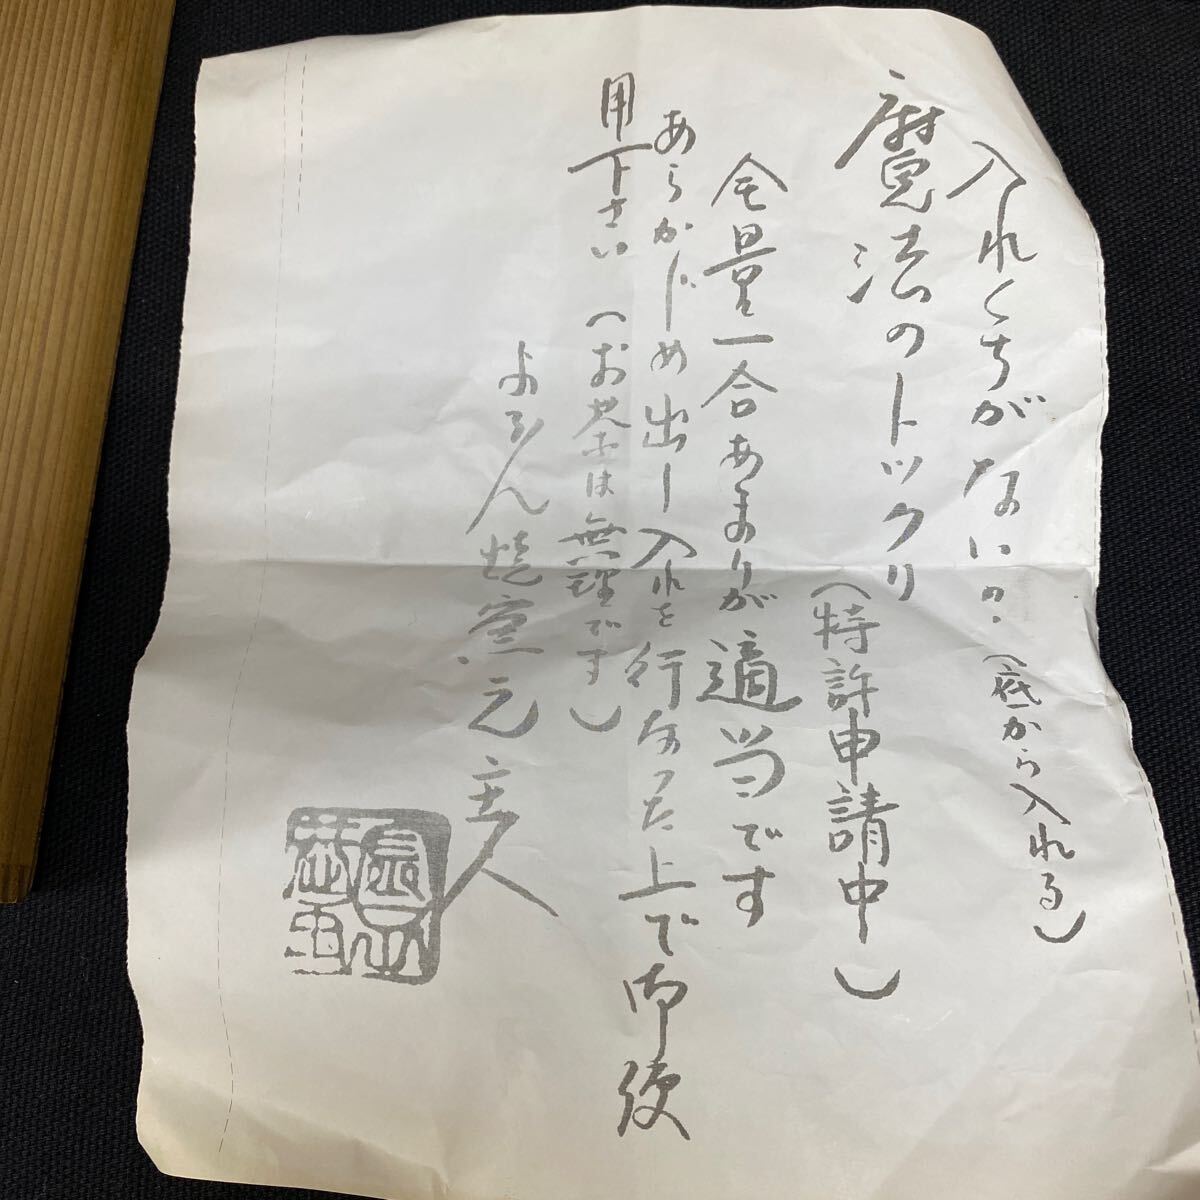 入れくちがないの.(底から入れる)
魔法のトックリ
(特許申請中)
全量一合あまりが適当です
あらかじめ出し入れを行なった上で御使
用下さい(お茶は無理です)
焼窯元主人